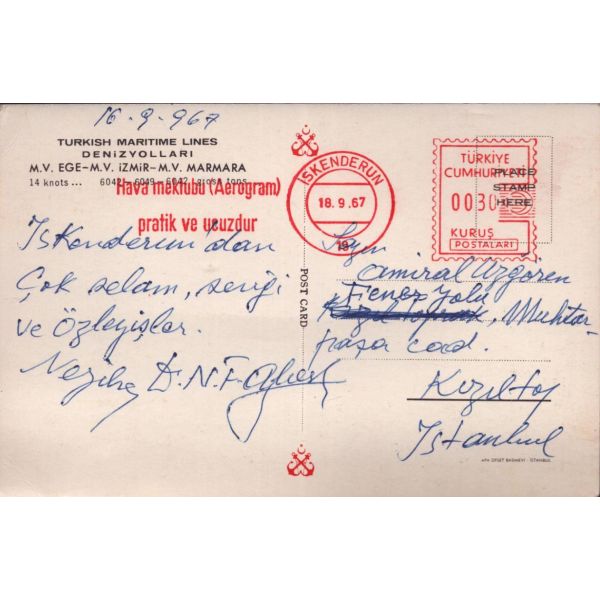 16-9-967
TURKISH MARITIME LINES
DENİZYOLLARI
M.V. EGE–M.V. İZMİR–M.V. MARMARA
14 knots ... 6042 - 6049 - 6042 gross tons
Hava mektubu (Aerogram)
pratik ve ucuzdur
İSKENDERUN
18.9.67
19
TÜRKİYE
CUMHURİYETİ
0030
KURUŞ
POSTALARI
PLACE
STAMP
HERE
İskenderun'dan
Çok selam, sevgi
ve Özleyişler.
Nezihe D.N.F.
POST CARD
Sayın
Amiral Uzgören
Fener Yolu
Muhtar-
paşa cad.
Kızıltoy
İstanbul
APA OFSET BASIMEVİ - İSTANBUL